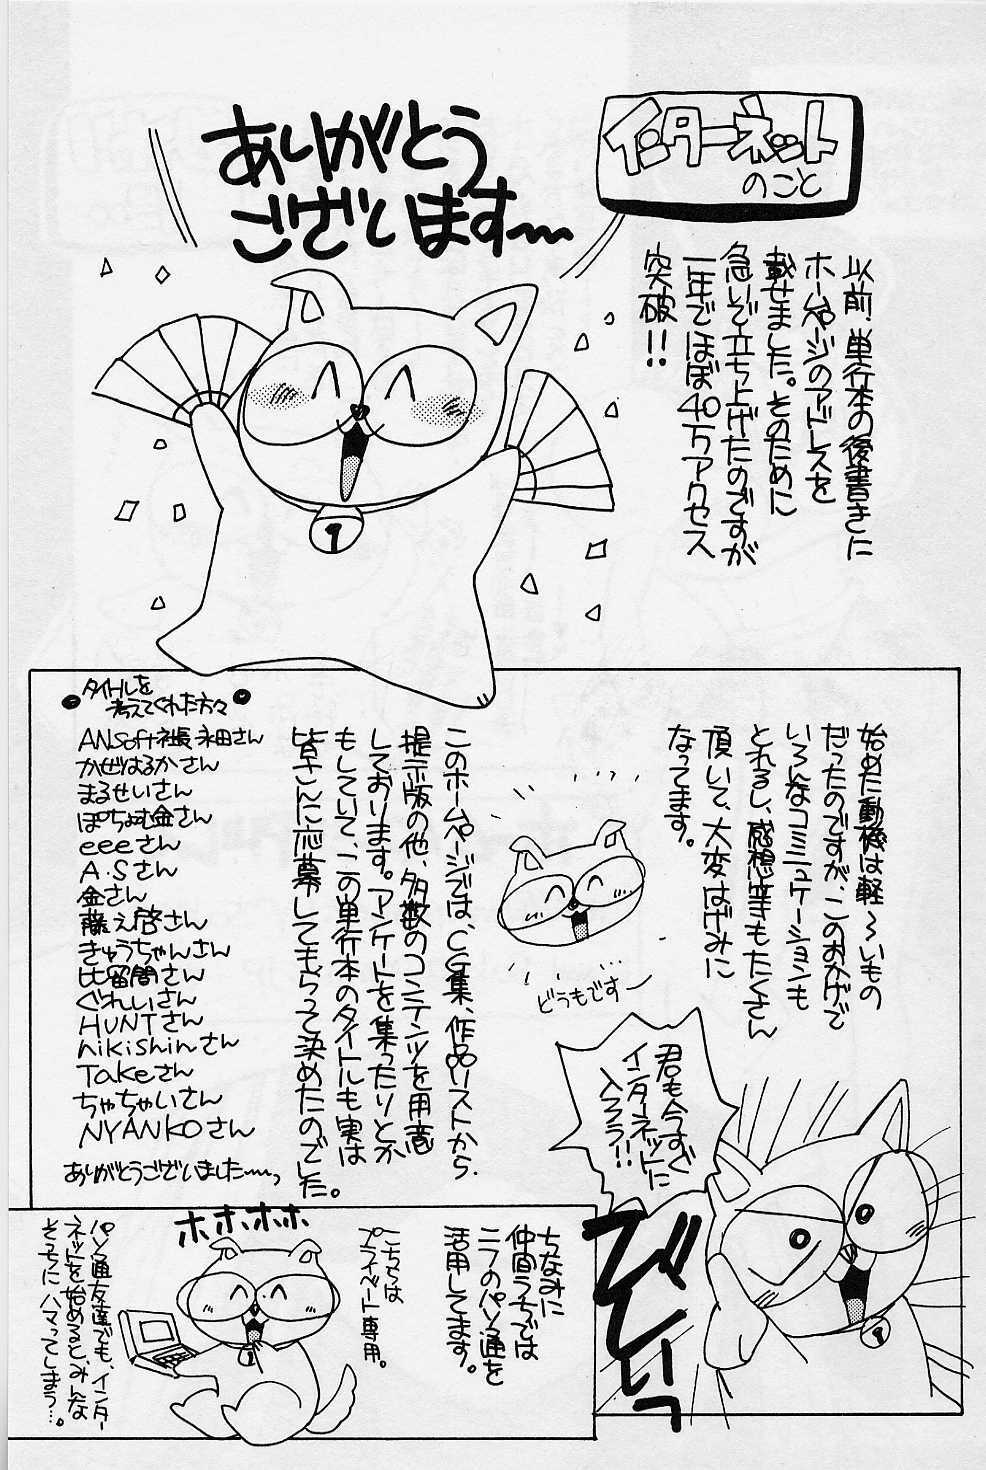 インターネット
のこと
以前、単行本の後書きに
ホームページのアドレスを
載せました。そのために
急いで立ち上げたのですが
一年でほぼ40万アクセス
突破!!
ありがとう
ございます〜
始めた動機は軽〜いもの
だったのですが、このおかげで
いろんなコミュニケーションも
とれるし、感想等もたくさん
頂いて、大変はげみに
なってます。
どうもですー
このホームページでは、CG集、作品リストから
提示版の他、多数のコンテンツを用意
しております。アンケートを集ったりとか
もしていて、この単行本のタイトルも実は
皆さんに応募してもらって決めたのでした。
タイトルを
考えてくれた方々
ANSoft社長永田さん
かぜはるかさん
まるせいさん
ぽちょむ金さん
eeeさん
A.Sさん
金さん
藤え啓さん
きゅうちゃんさん
比留間さん
ぐれいさん
HUNTさん
hikishinさん
Takeさん
ちゃちゃいさん
NYANKOさん
ありがとうございました〜っ
君も今すぐ
インターネットに
入ろう!!
でぃっ
ちなみに
仲間うちでは
ニフのパソ通を
活用してます。
こちらは
プライベート専用。
ホホホホ
パソ通友達でも、インター
ネットを始めると、みんな
そっちにハマってしまう…。